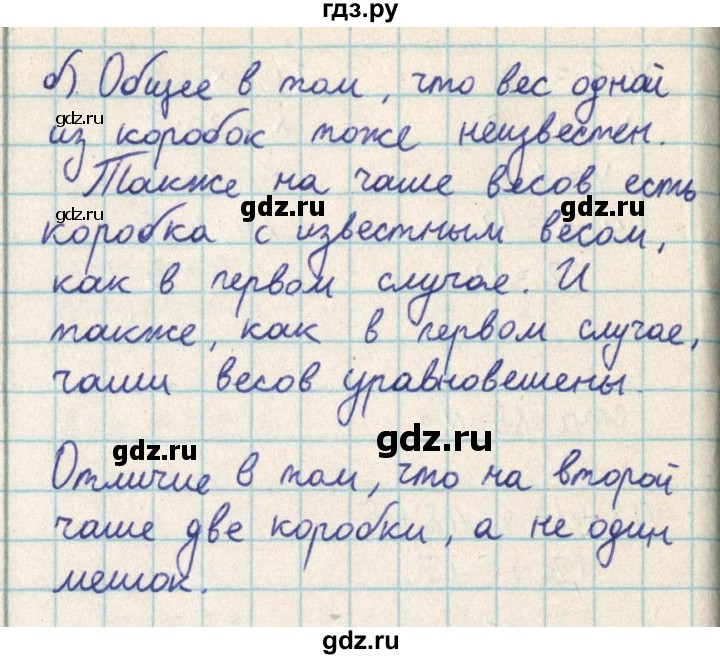 гдз.ру
б). Общее в том, что вес одной
gdz.ru
из коробок тоже неизвестен.
Также на чаше весов есть
gdz.ru gdz.ru gdz.ru
коробка с известным весом,
как в первом случае. И
также, как в первом случае,
чаши весов уравновешены.
gdz.ru gdz.ru
Отличие в том, что на второй
чаше две коробки, а не один
мешок.
gdz.ru